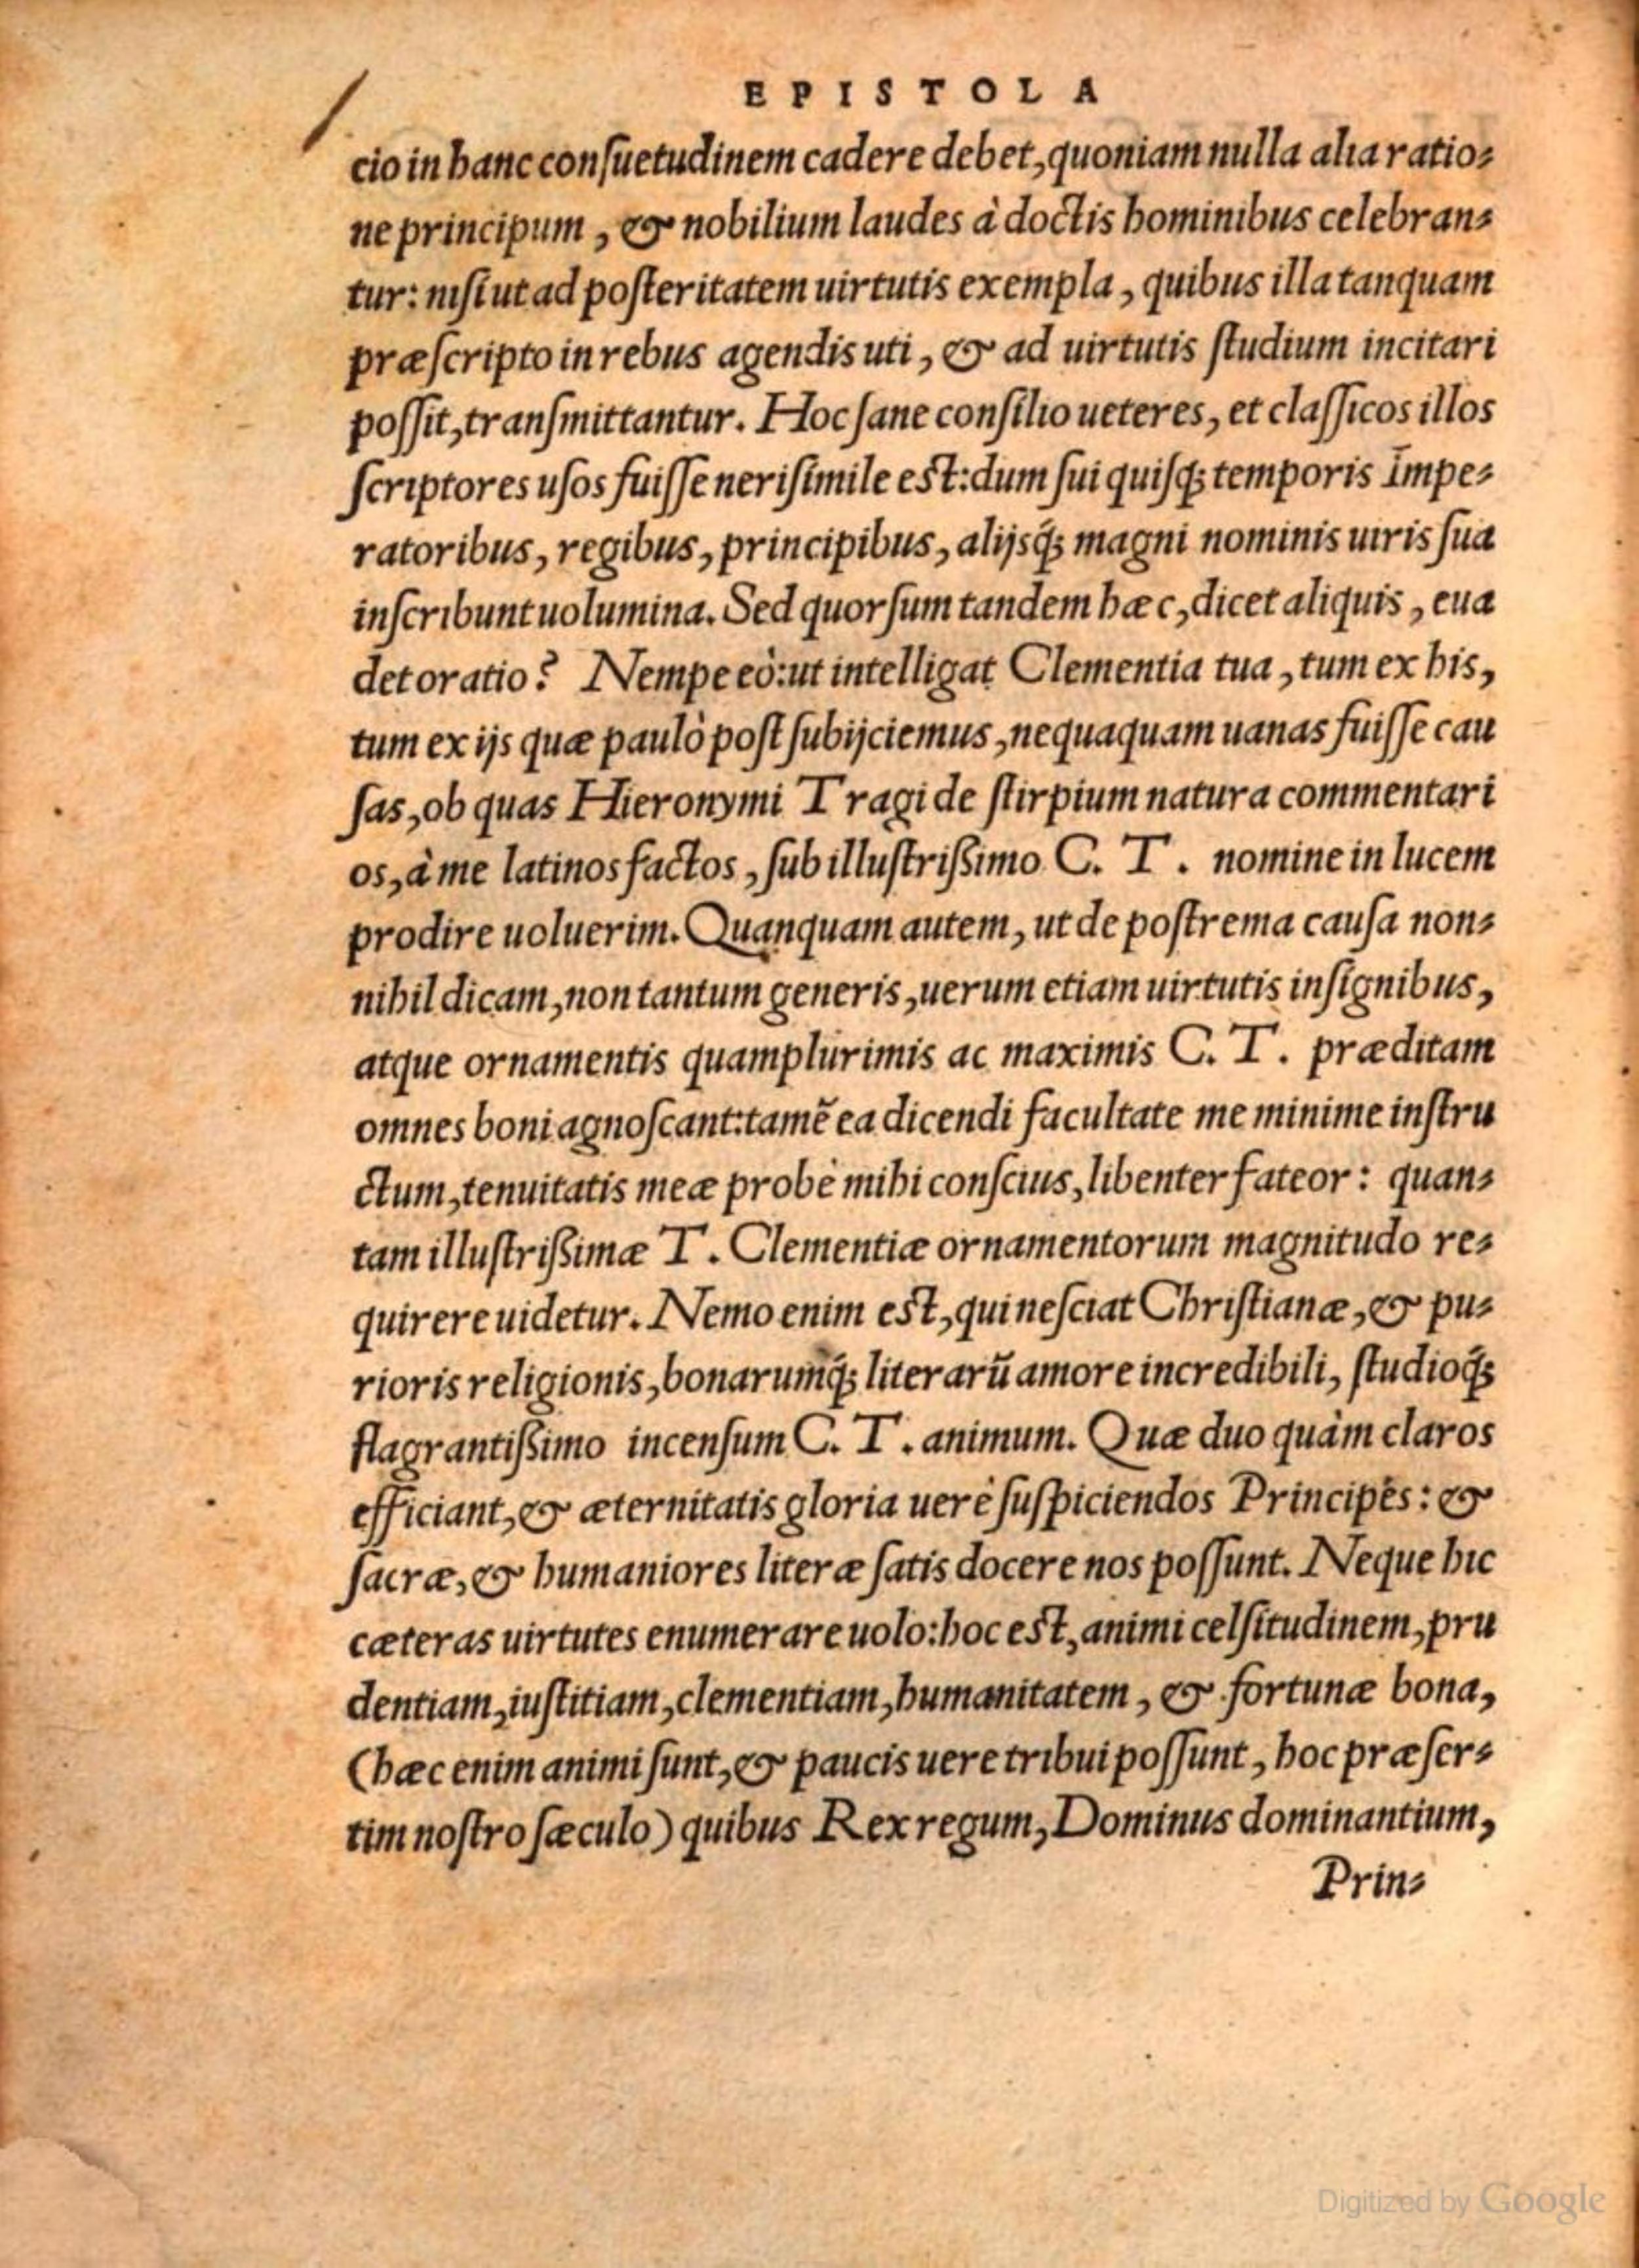 EPISTOLA
cio in hanc conſuetudinem cadere debet, quoniam nulla alia ratio⸗
ne principum, & nobilium laudes à doctis hominibus celebran⸗
tur: niſi ut ad poſteritatem uirtutis exempla, quibus illa tanquam
præſcripto in rebus agendis uti, & ad uirtutis ſtudium incitari
poſſit, tranſmittantur. Hoc ſane conſilio ueteres, et claſſicos illos
ſcriptores uſos fuiſſe neriſimile eſt: dum ſui quiſq; temporis Impe⸗
ratoribus, regibus, principibus, alijsq́; magni nominis uiris ſua
inſcribunt uolumina. Sed quorſum tandem hæc, dicet aliquis, eua
det oratio? Nempe eò: ut intelligat Clementia tua, tum ex his,
tum ex ijs quæ paulò poſt ſubijciemus, nequaquam uanas fuiſſe cau
ſas, ob quas Hieronymi Tragi de ſtirpium natura commentari
os, à me latinos factos, ſub illuſtriſsimo C. T. nomine in lucem
prodire uoluerim. Quanquam autem, ut de poſtrema cauſa non⸗
nihil dicam, non tantum generis, uerum etiam uirtutis inſignibus,
atque ornamentis quamplurimis ac maximis C. T. præditam
omnes boni agnoſcant: tamē ea dicendi facultate me minime inſtru
ctum, tenuitatis meæ probè mihi conſcius, libenter fateor: quan⸗
tam illuſtriſsimæ T. Clementiæ ornamentorum magnitudo re⸗
quirere uidetur. Nemo enim eſt, qui neſciat Chriſtianæ, & pu⸗
rioris religionis, bonarumq́; literarū amore incredibili, ſtudioq́;
flagrantiſsimo incenſum C. T. animum. Quæ duo quàm claros
efficiant, & æternitatis gloria uerè ſuſpiciendos Principes: &
ſacræ, & humaniores literæ ſatis docere nos poſſunt. Neque hic
cæteras uirtutes enumerare uolo: hoc eſt, animi celſitudinem, pru
dentiam, iuſtitiam, clementiam, humanitatem, & fortunæ bona,
(hæc enim animi ſunt, & paucis uere tribui poſſunt, hoc præſer⸗
tim noſtro ſæculo) quibus Rex regum, Dominus dominantium,
Prin⸗
Digitized by Google